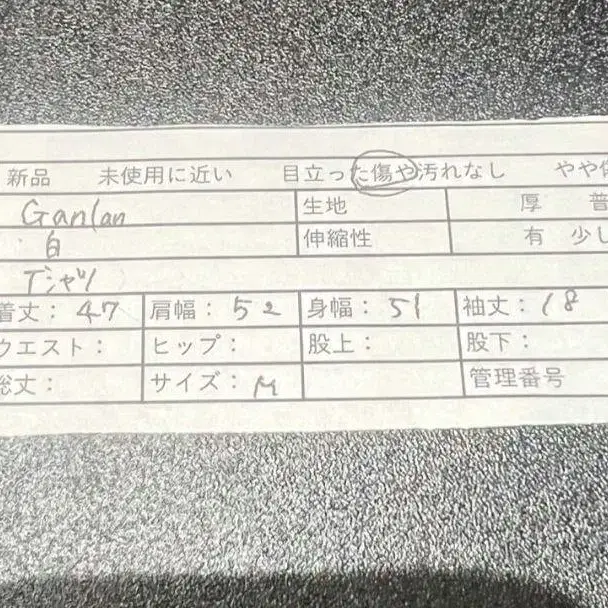 新品 未使用に近い 目立った傷や汚れなし やや
Ganlan 生地 厚 普
白 伸縮性 有 少し
Tシャツ
着丈: 47 肩幅: 52 身幅: 51 袖丈: 18
ウエスト: ヒップ: 股上: 股下:
総丈: サイズ: M 管理番号